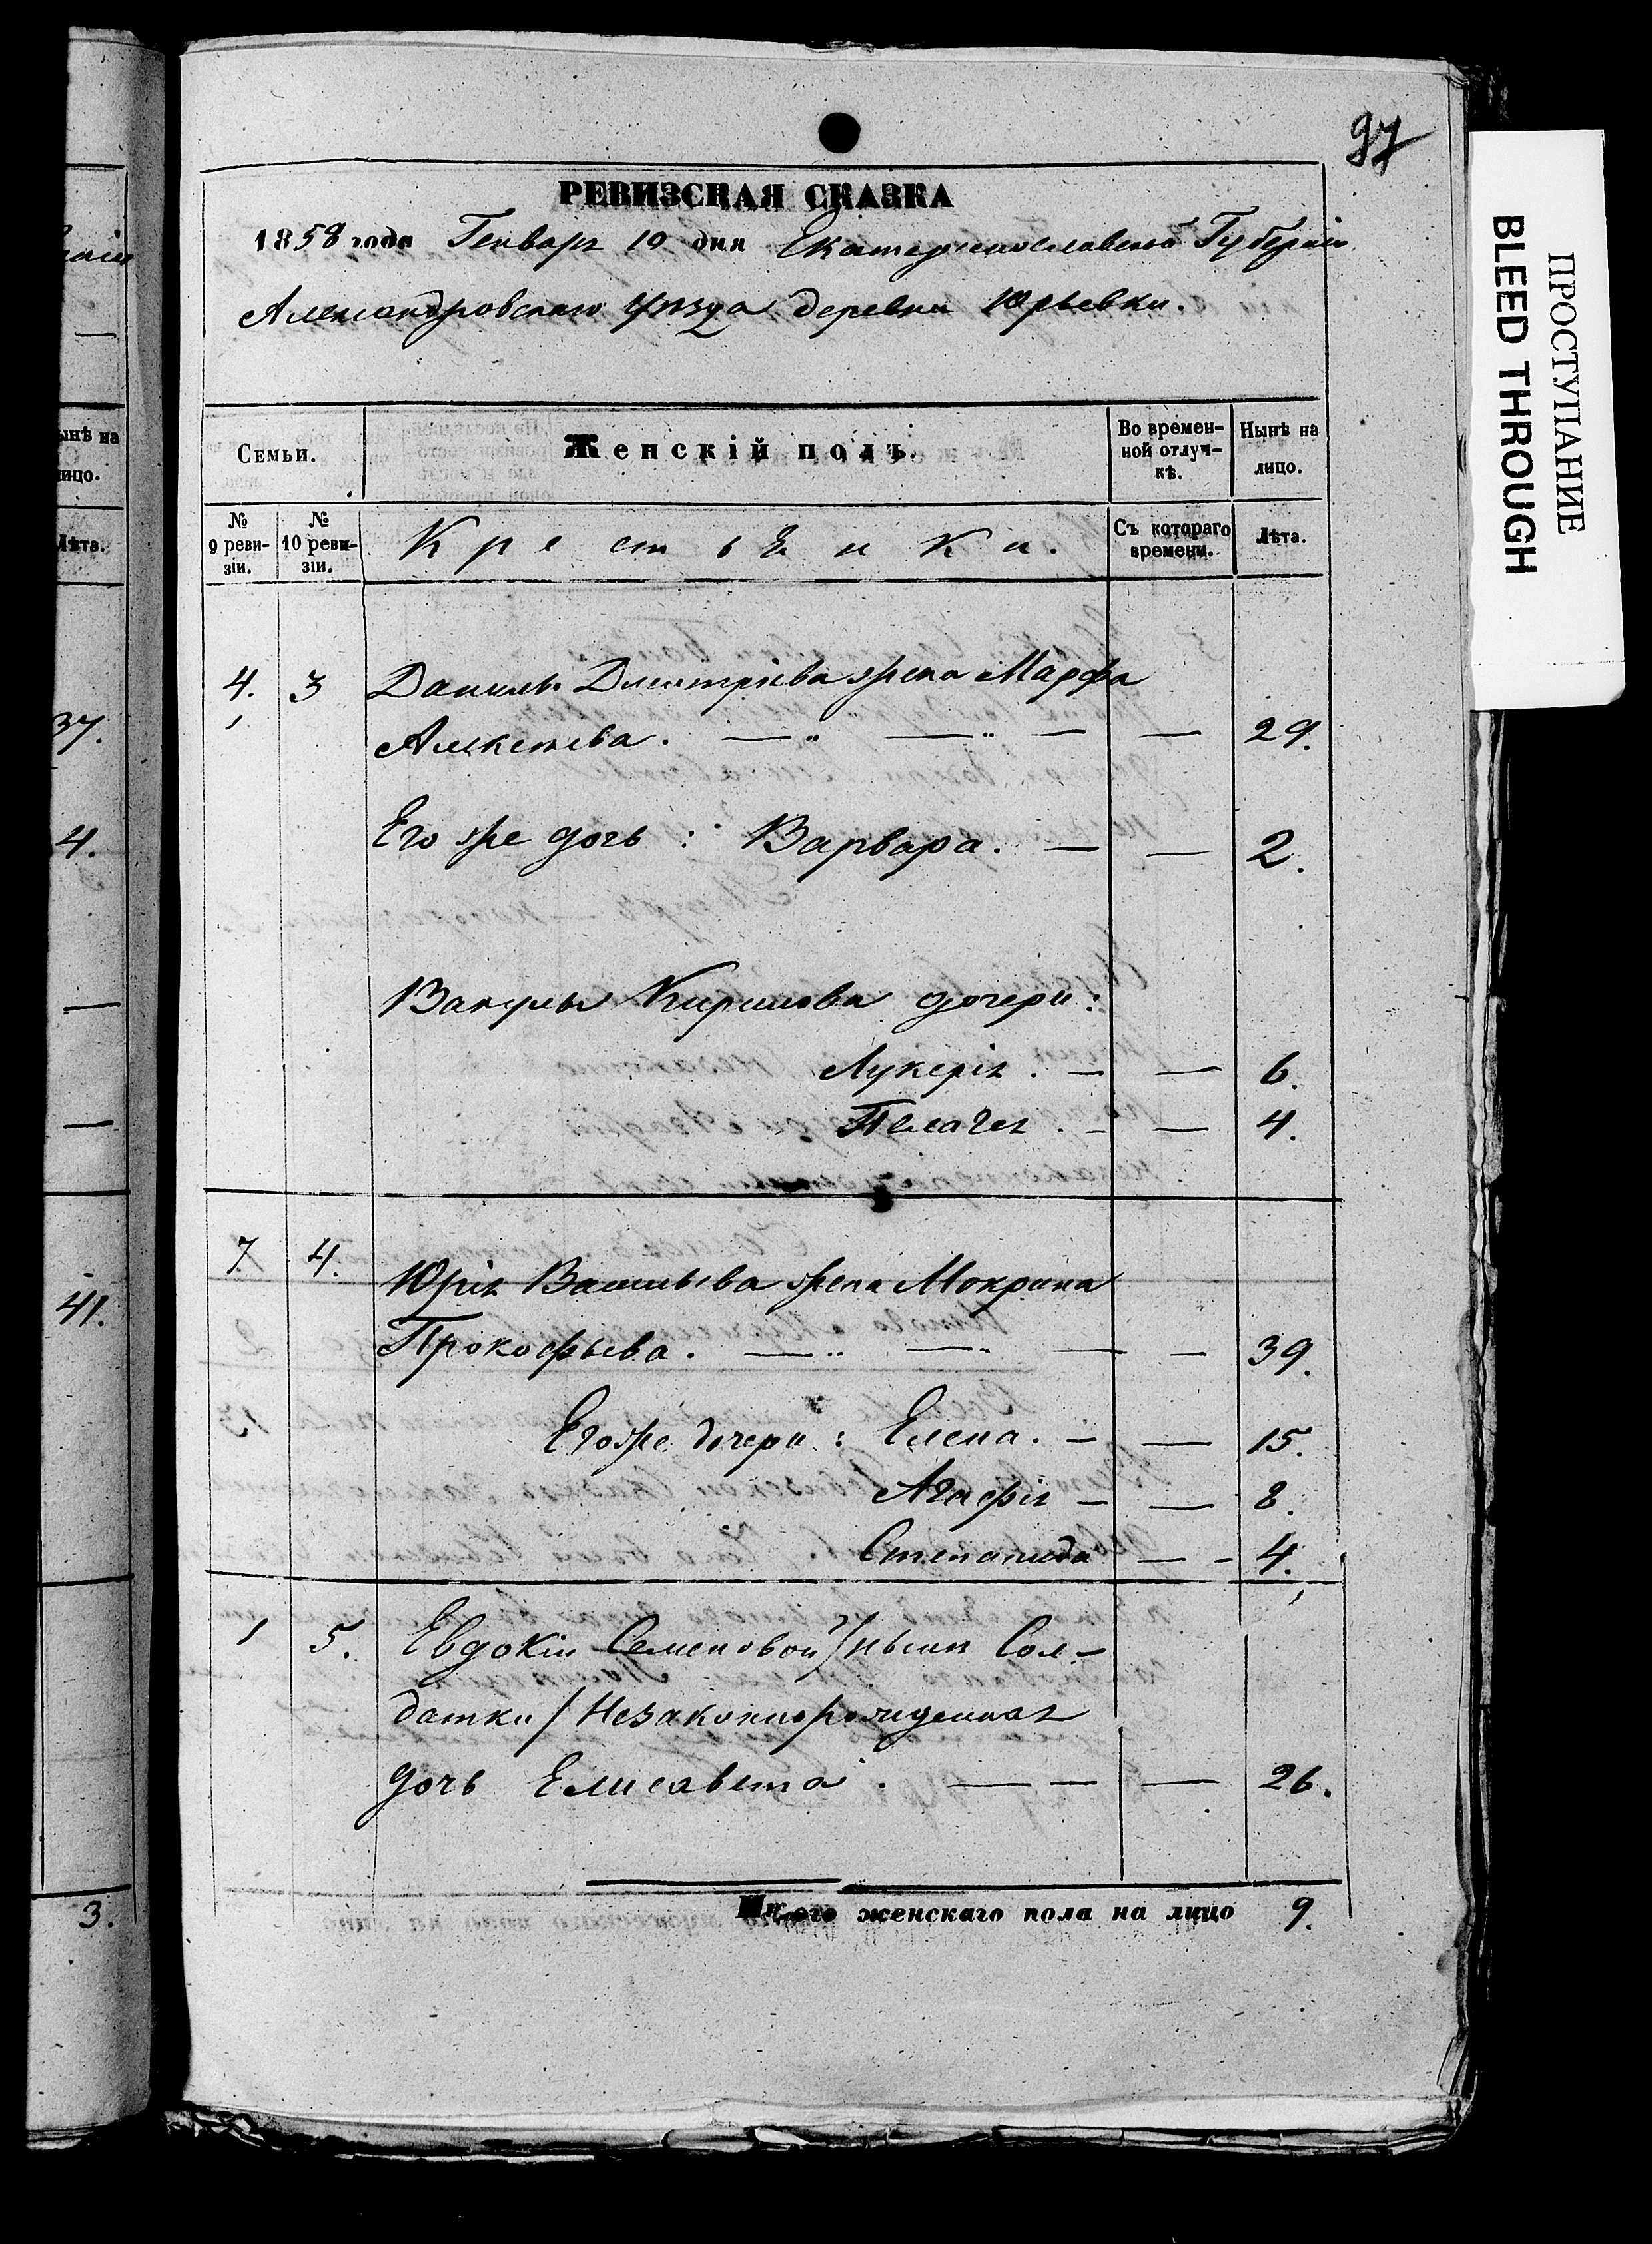 97
РЕВИЗСКАЯ СКАЗКА
1858 года Генваря 10 дня Екатеринославской Губерніи
Александровскаго уѣзда деревни Юрьевки.
Семьи.
Женскій полъ.
Во времен-
ной отлуч-
кѣ.
Нынѣ на
лицо.
№
9 реви-
зіи.
№
10 реви-
зіи.
Крестьянки.
Съ котораго
времени.
Лѣта.
4. 3 Данилы Дмитріева жена Марфа
Алексѣева. — „ — „ — — 29.
Его же дочь: Варвара. — — 2.
Вакулы Кирилова дочери:
Лукерія. — — 6.
Пелагея. — — 4.
7. 4. Юрія Васильева жена Мокрина
Прокофьева. — „ — „ — — 39.
Его же дочери: Елена. — — 15.
Агафія — — 8.
Степанида — - 4.
1 5. Евдокіи Семеновой /нынѣ Сол-
датки/ Незаконнорожденная
дочь Елисавета. — — — 26.
Итого женскаго пола на лицо 9.
ынѣ на
ицо.
Лѣта.
37.
4.
—
—
41.
3.
ПРОСТУПАНИЕ
BLEED THROUGH